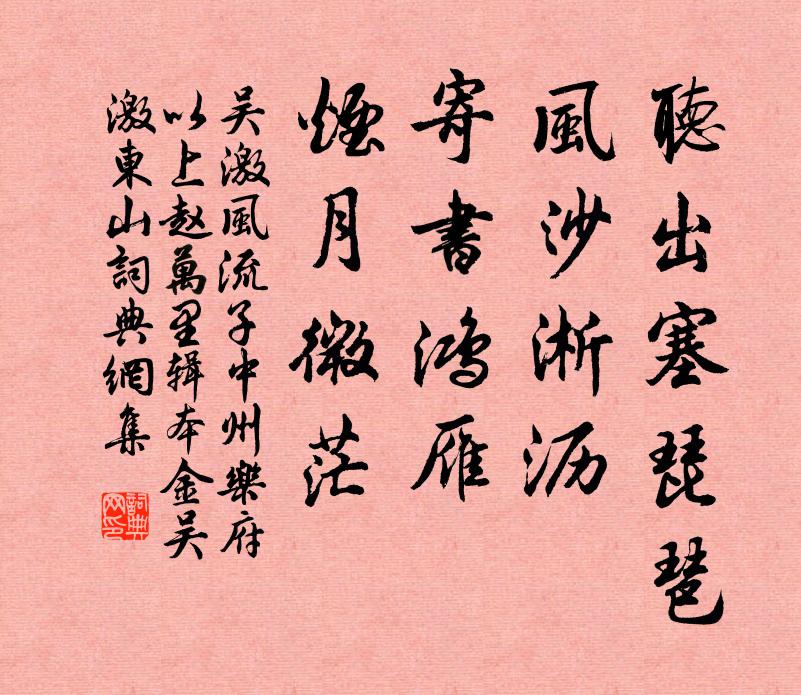 聽出塞琵琶
風沙淅沥
寄書鴻雁
煙月微茫
吴激風流子中州樂府
以上赵萬里辑本金吴
激東山詞典網集
詞典网印